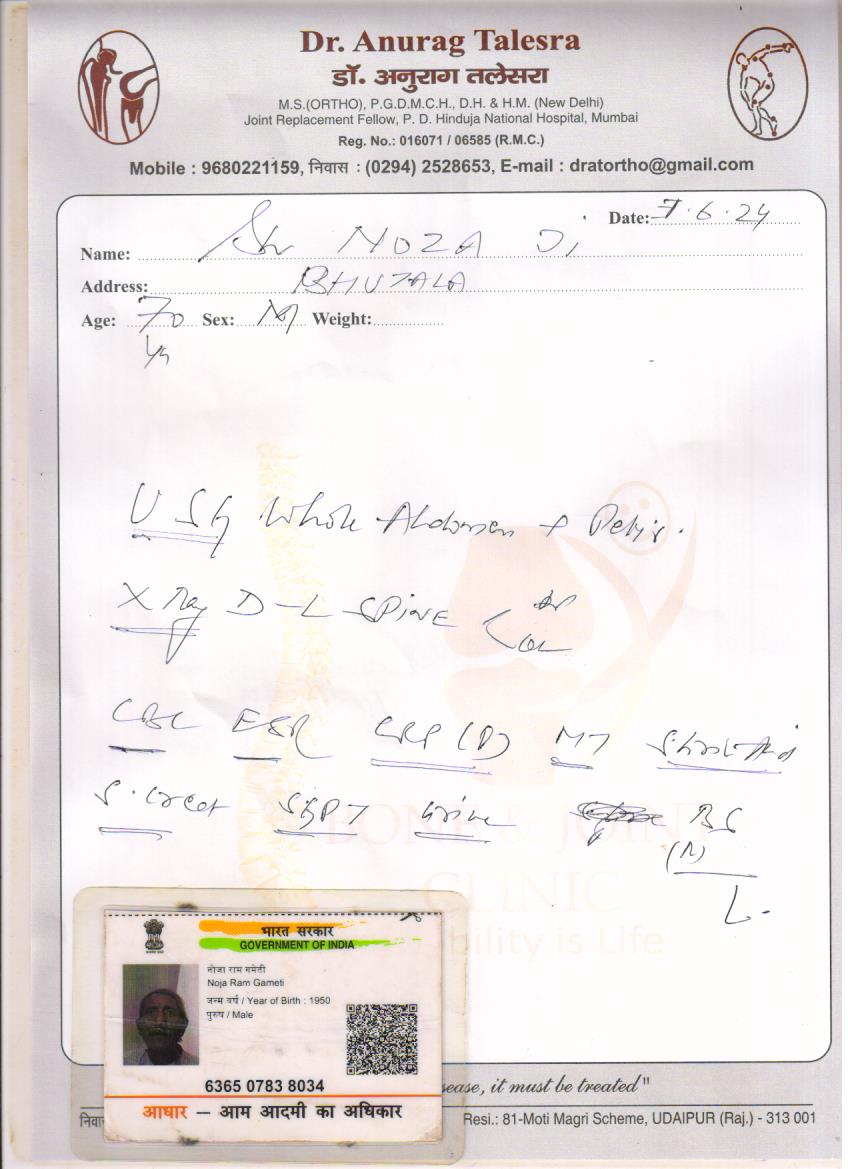 Dr. Anurag Talesra
डॉ. अनुराग तलेसरा
M.S.(ORTHO), P.G.D.M.C.H., D.H. & H.M. (New Delhi)
Joint Replacement Fellow, P. D. Hinduja National Hospital, Mumbai
Reg. No.: 016071 / 06585 (R.M.C.)
Mobile : 9680221159, निवास : (0294) 2528653, E-mail : dratortho@gmail.com
Date: 7.6.24
Name: Sh NOZA JI
Address: BHUTALA
Age: 70 Sex: M Weight:
USG Whole Abdomen + Pelvis.
X Ray D-L SPINE AP
CBC ESR CRP (Q) MT
S. Creat SGPT Urine BS
(R)
BONE & JOINT
CLINIC
bility is Life
भारत सरकार
GOVERNMENT OF INDIA
नोजा राम गमेती
Noja Ram Gameti
जन्म वर्ष / Year of Birth : 1950
पुरुष / Male
6365 0783 8034
आधार – आम आदमी का अधिकार
sease, it must be treated"
निवा
Resi.: 81-Moti Magri Scheme, UDAIPUR (Raj.) - 313 001